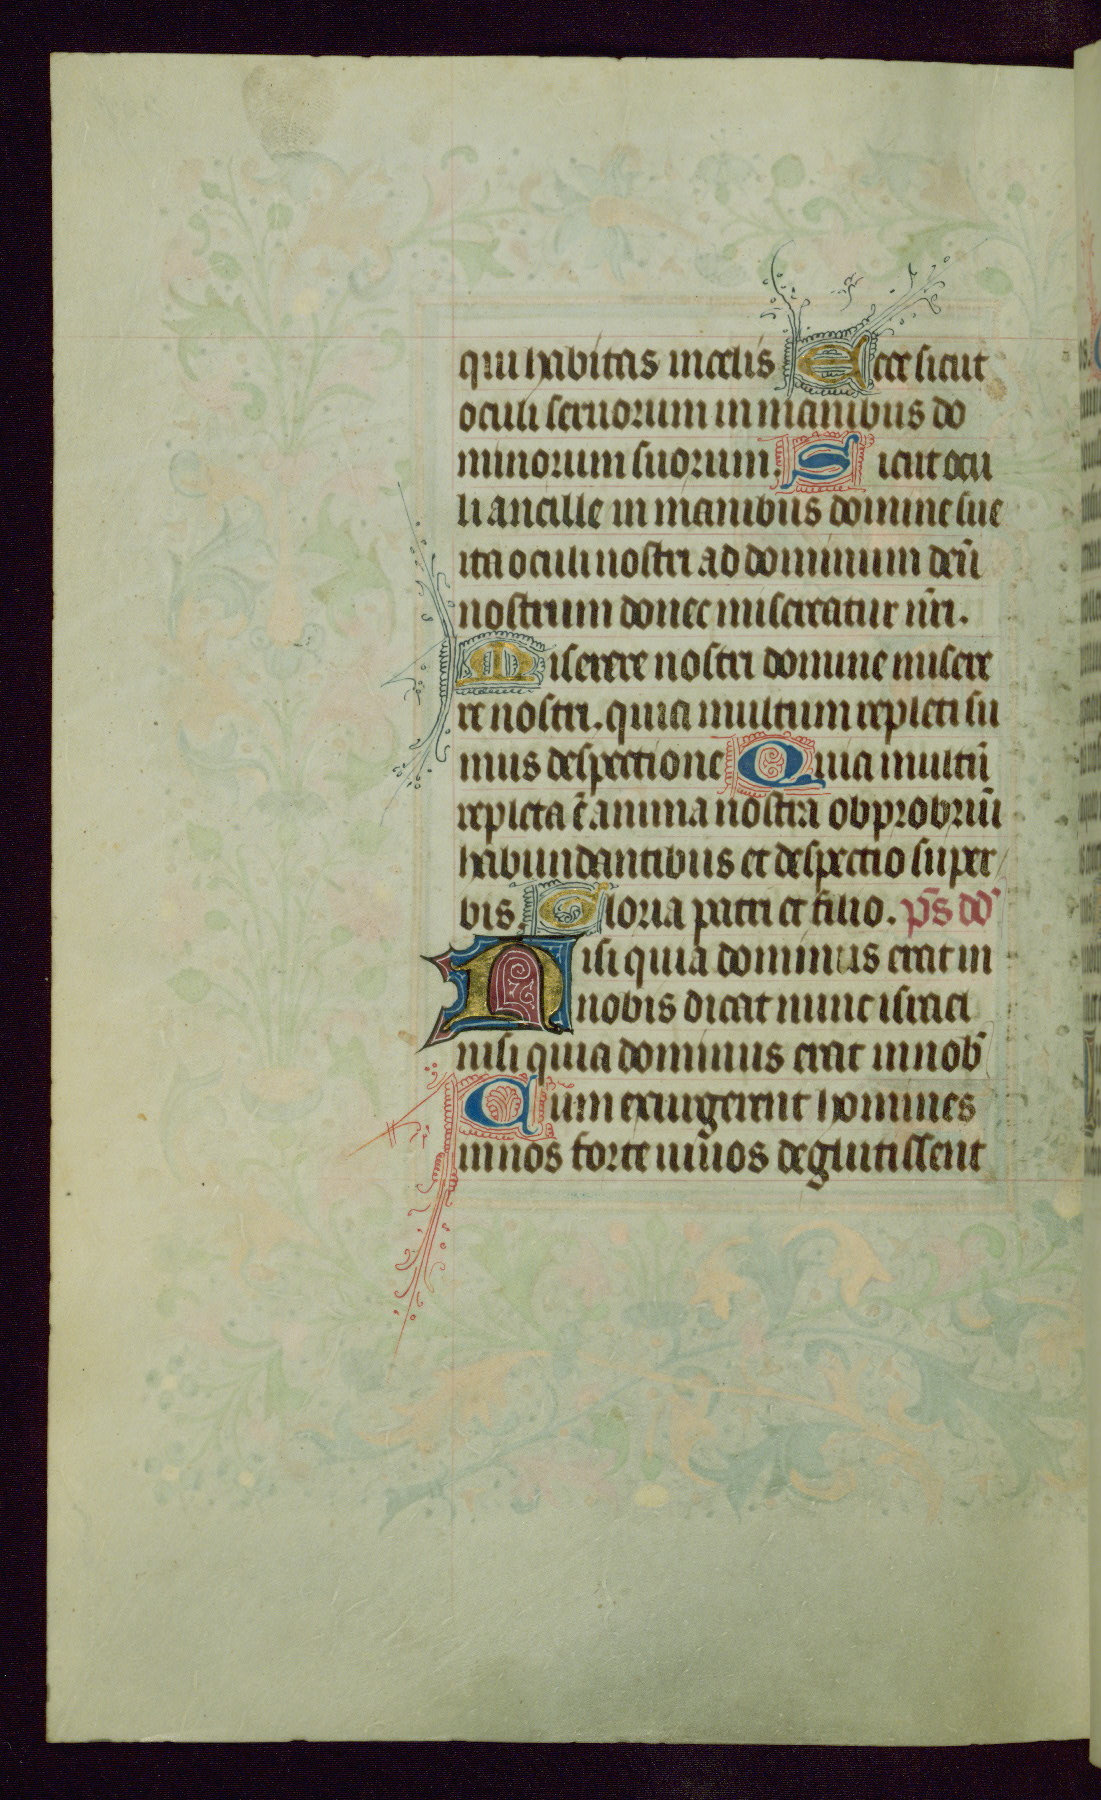 qui habitas in celis Ecce sicut
oculi seruorum in manibus do
minorum suorum. Sicut ocu
li ancille in manibus domine sue
ita oculi nostri ad dominum deū
nostrum donec misereatur nr̄i.
Miserere nostri domine misere
re nostri. quia multum repleti su
mus despectione Quia multū
repleta ē anima nostra obprobriū
habundantibus et despectio super
bis. Gloria patri et filio. ps̄ dd
Nisi quia dominus erat in
nobis dicat nunc israel
nisi quia dominus erat in nob̄
Cum exurgerent homines
in nos forte uiuos deglutissent